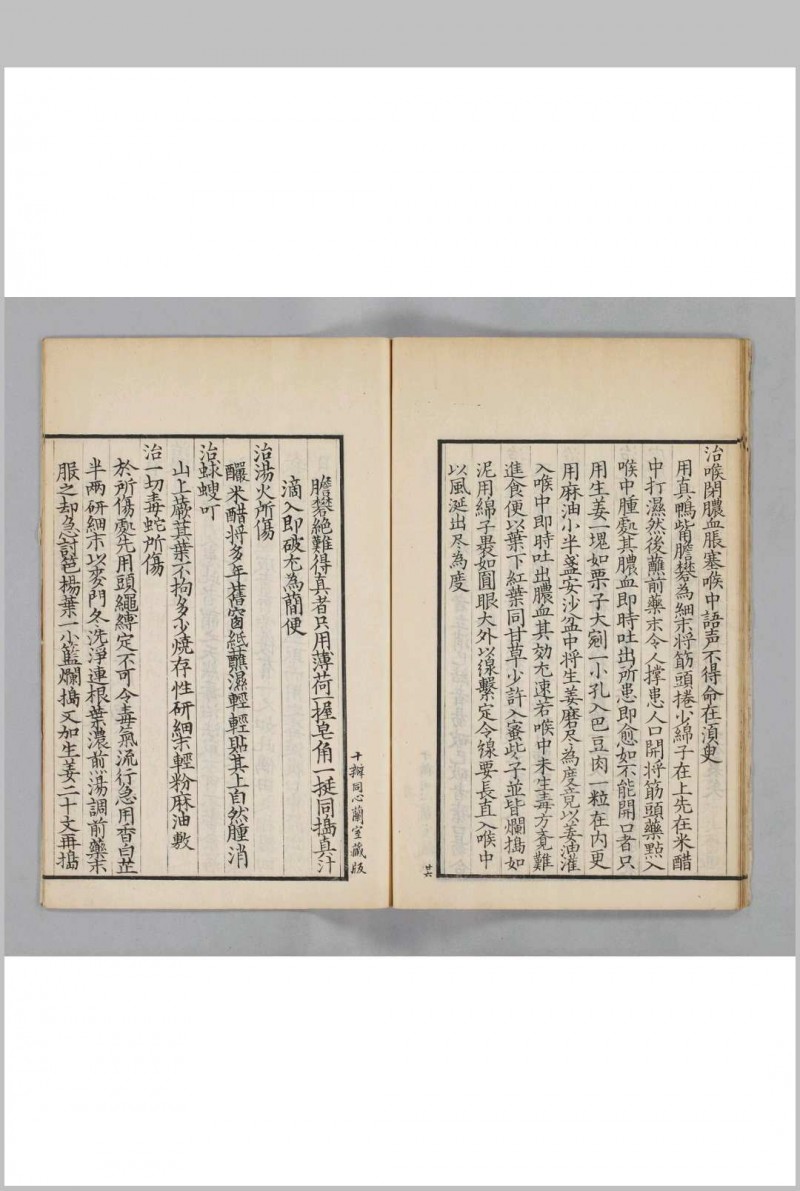 治喉閉膿血脹塞喉中語声不得命在湏臾
用真鴨觜膽礬為細末将筋頭捲少綿子在上先在米醋
中打濕然後蘸前藥末令人撑患人口開将筋頭藥㸃入
喉中腫處其膿血即時吐出所患即愈如不能開口者只
用生姜一塊如栗子大剜一小孔入巴豆肉一粒在内更
用麻油小半盞安沙盆中将生姜磨尽為度竟以姜油灌
入喉中即時吐出膿血其効尤速若喉中未生毒方覔難
進食便以葉下紅葉同甘草少許入蜜些子並皆爛搗如
泥用綿子褁如圓眼大外以線繫定令線要長直入喉中
以風涎出尽為度
廿六
十瓣同心蘭室藏版
膽礬絶難得真者只用薄荷一握皂角一挺同搗真汁
滴入即破尤為簡便
治湯火所傷
釅米醋将多年舊窗紙蘸濕輕輕貼其上自然腫消
治蛷螋叮
山上蕨萁葉不拘多少燒存性研細末輕粉麻油敷
治一切毒蛇所傷
於所傷處先用頭繩縛定不可令毒氣流行急用香白芷
半兩研細末以麥門冬洗淨連根葉濃煎湯調前藥末
服之却急討笆楊葉一小籃爛搗又加生姜二十文再搗